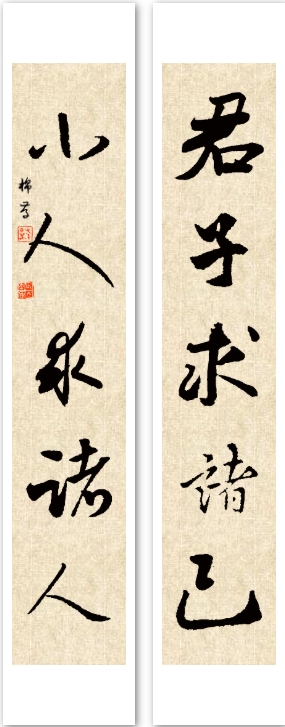 君子求諸己
小人求諸人